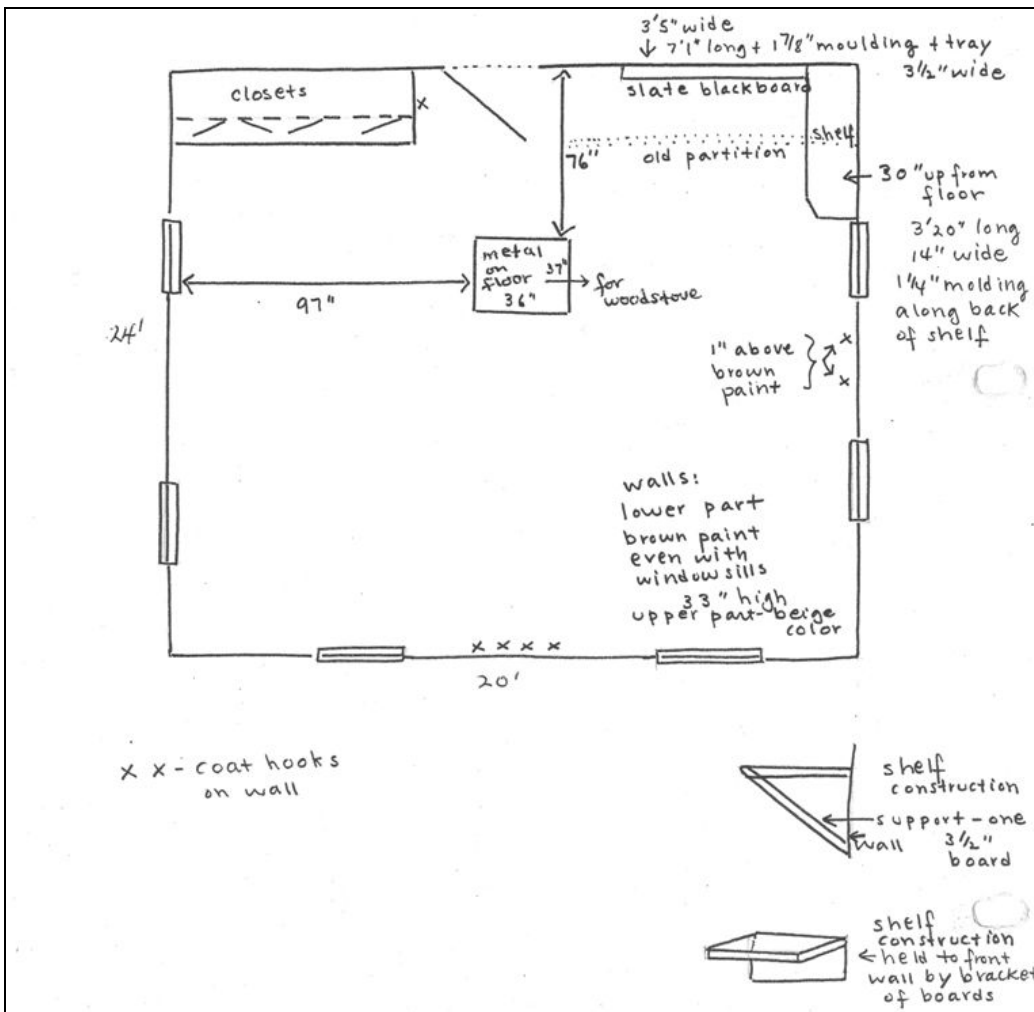 3'5" wide
↓ 7'1" long + 1 7/8" moulding + tray
3 1/2" wide
closets
x
slate blackboard
shelf
76"
old partition
← 30" up from
floor
3'20" long
14" wide
1 1/4" molding
along back
of shelf
metal
on
floor
37"
36"
→ for
woodstove
97"
24'
1" above
brown
paint
x
x
walls:
lower part
brown paint
even with
windowsills
33" high
upper part - beige
color
x x x x
20'
x x - coat hooks
on wall
shelf
construction
support - one
wall 3 1/2"
board
shelf
construction
← held to front
wall by bracket
of boards